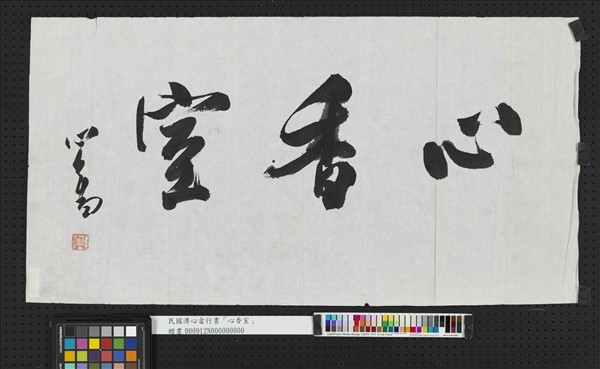 心香室
心畬
民國溥心畬行書「心香室」
贈書 000912N000000000